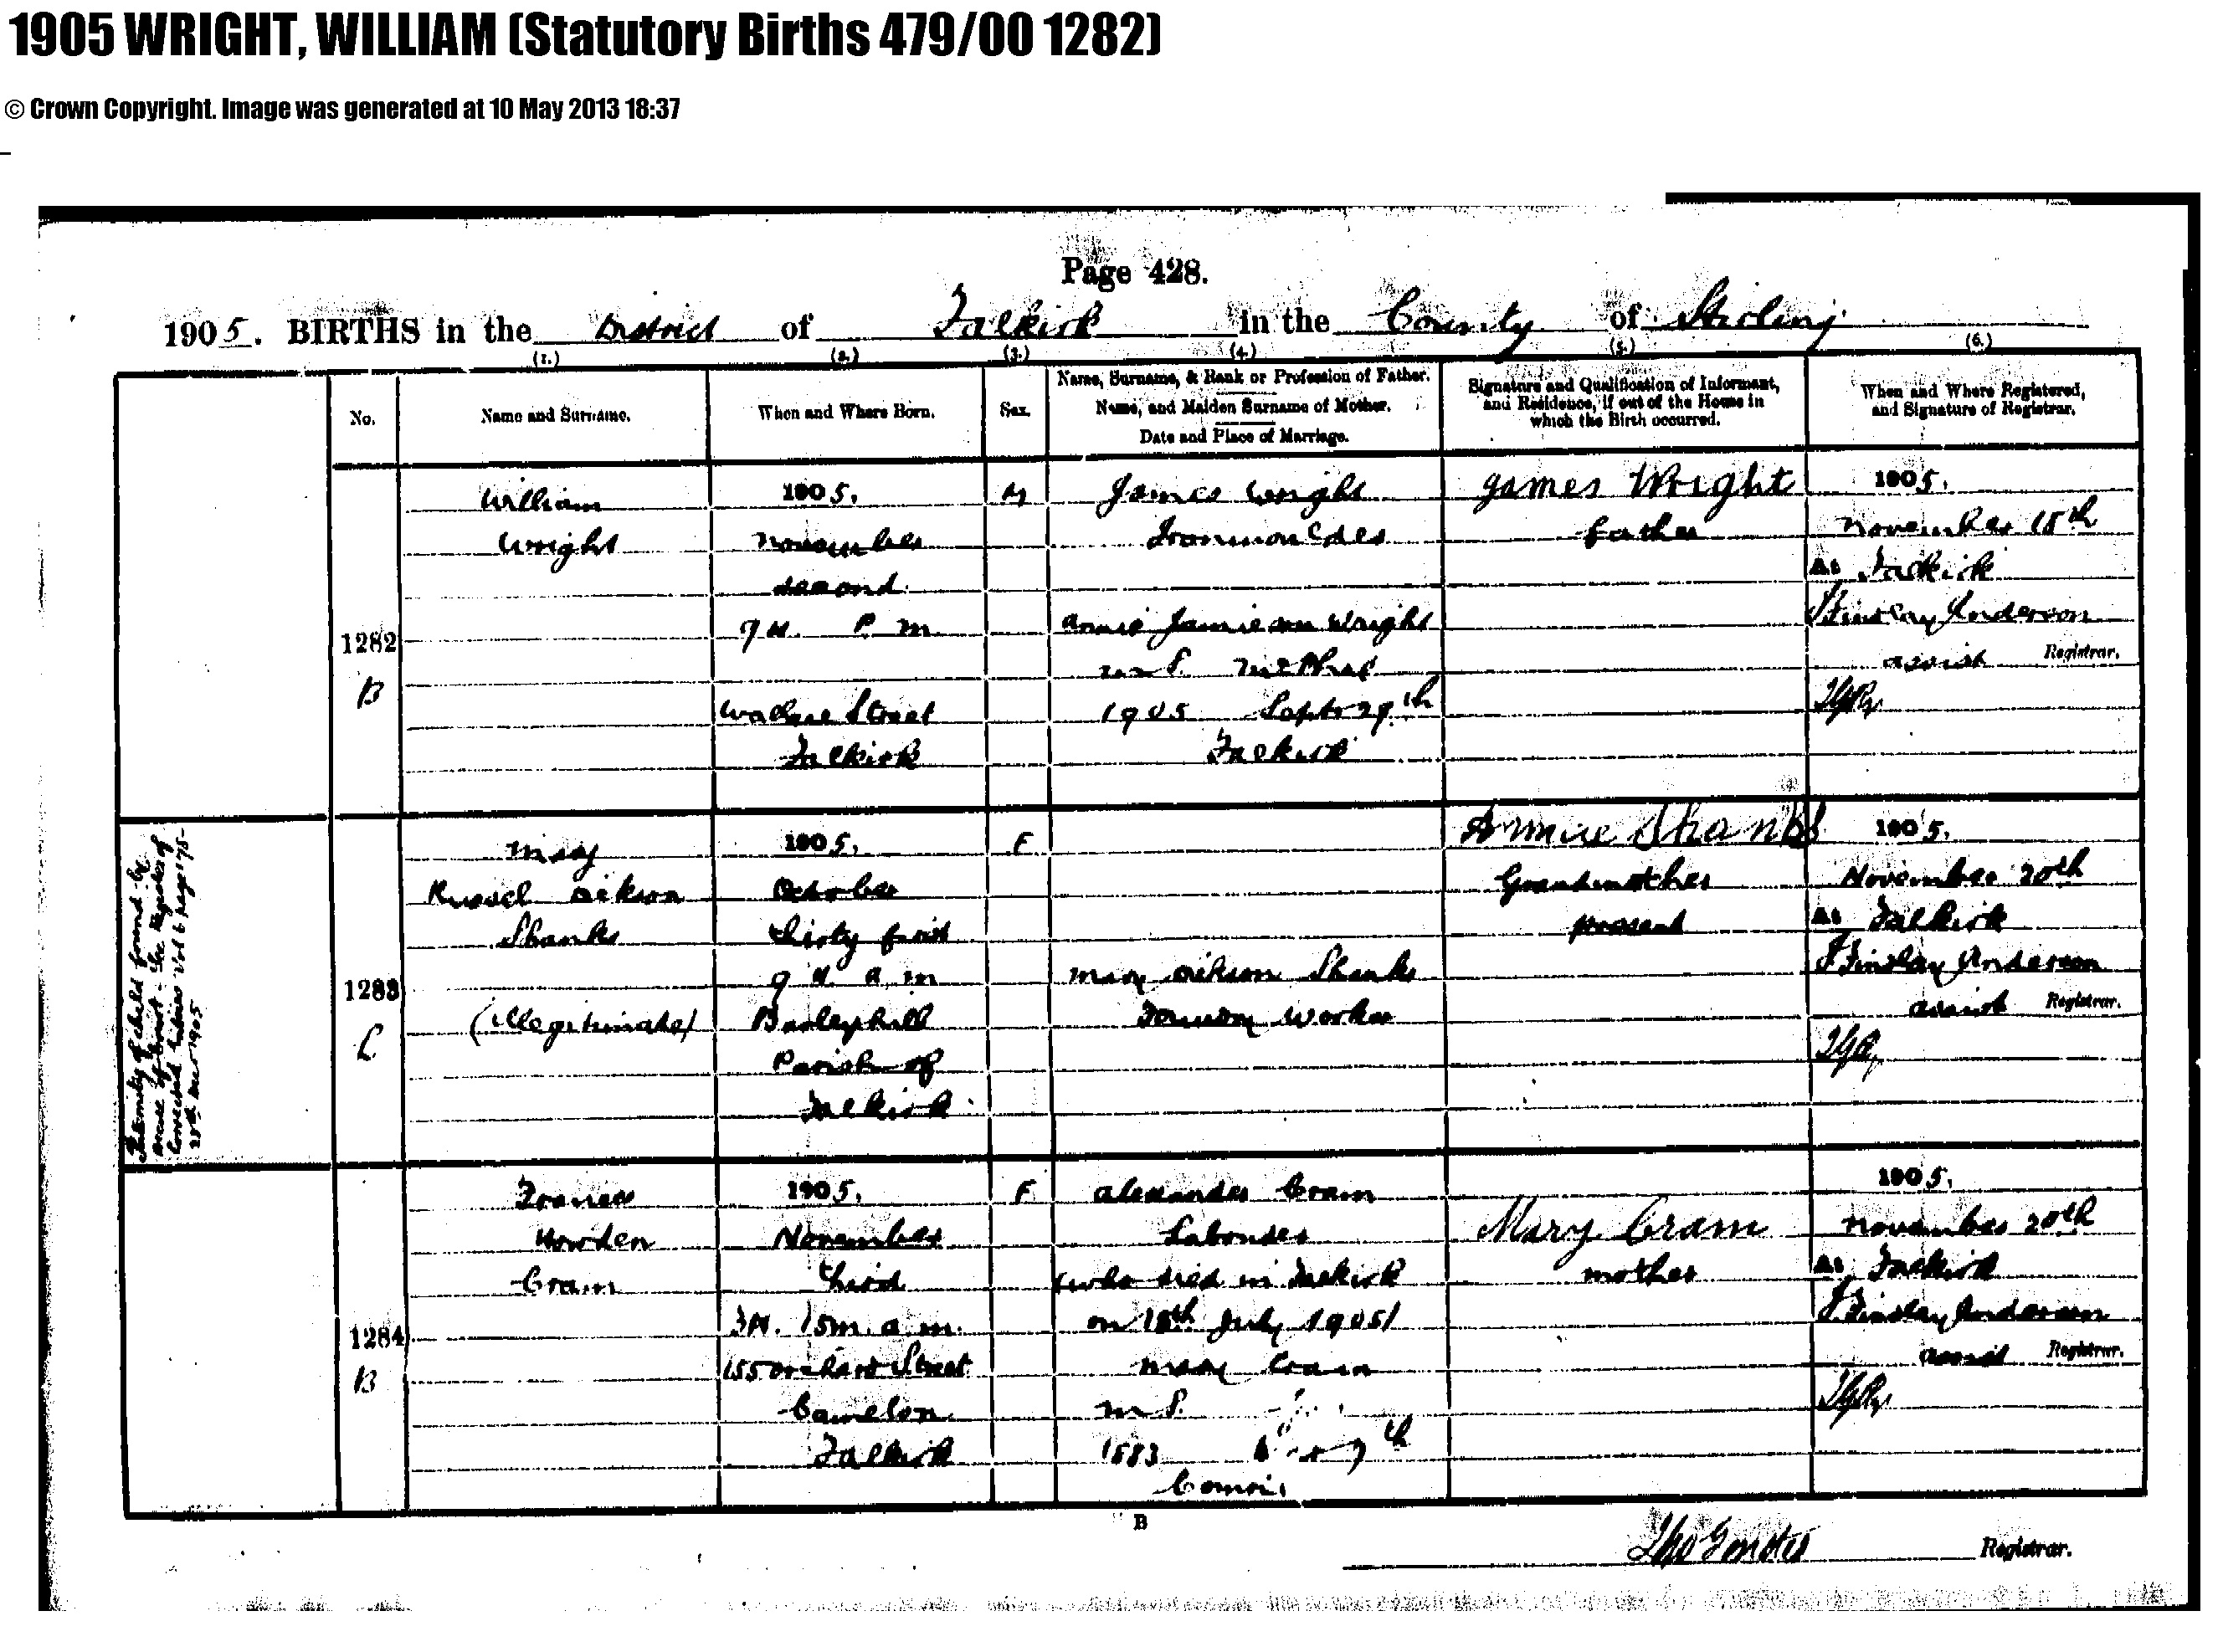 1905 WRIGHT, WILLIAM (Statutory Births 479/00 1282)
© Crown Copyright. Image was generated at 10 May 2013 18:37
Page 428.
1905. BIRTHS in the District of Falkirk in the County of Stirling
(1.) (2.) (3.) (4.) (5.) (6.)
No.
Name and Surname.
When and Where Born.
Sex.
Name, Surname, & Rank or Profession of Father.
Name, and Maiden Surname of Mother.
Date and Place of Marriage.
Signature and Qualification of Informant,
and Residence, if out of the House in
which the Birth occurred.
When and Where Registered,
and Signature of Registrar.
1282
B
William
Wright
1905.
November
second
9 H. P. M.
Wallace Street
Falkirk
M
James Wright
Ironmoulder
Annie Jamieson Wright
m.S. McPhail
1905 Septr 29th
Falkirk
James Wright
Father
1905.
November 18th
At Falkirk
J. Findlay Anderson
assist Registrar.
Paternity of child found by
decree of Court. See Register of
Corrected Entries Vol 6 Page 75
Dec 1905
1283
C
May
Russel Dickson
Shanks
(illegitimate)
1905.
October
thirty first
9 H. a.m
Barleyhill
Parish of
Falkirk
F
May Dickson Shanks
Foundry Worker
Annie Shanks
Grandmother
present
1905.
November 20th
At Falkirk
J. Findlay Anderson
assist Registrar.
1284
B
Frances
Howden
Cram
1905.
November
third
3H. 15m. a.m.
155 Orchard Street
Camelon
Falkirk
F
Alexander Cram
Labourer
(who died in Falkirk
on 18th July 1905)
Mary Cram
m S.
1883 7th
Comrie
Mary Cram
mother
1905.
November 20th
At Falkirk
J. Findlay Anderson
assist Registrar.
B
Registrar.